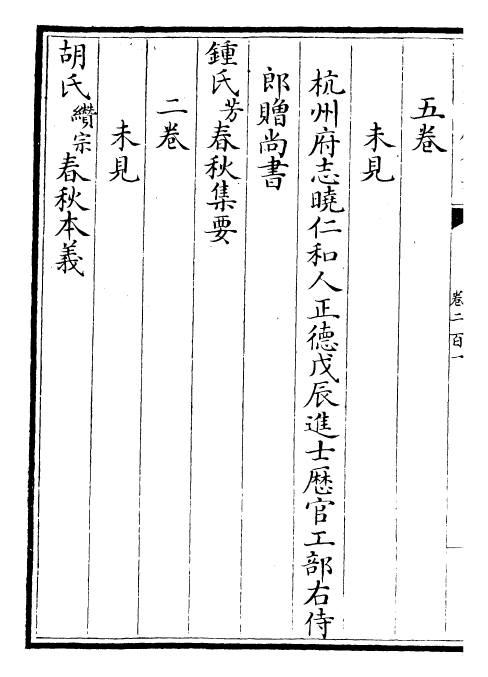 五卷
未見
杭州府志曉仁和人正德戊辰進士歴官工部右侍
郎贈尚書
鍾氏芳春秋集要
二卷
未見
胡氏纘宗春秋本義
卷二百一